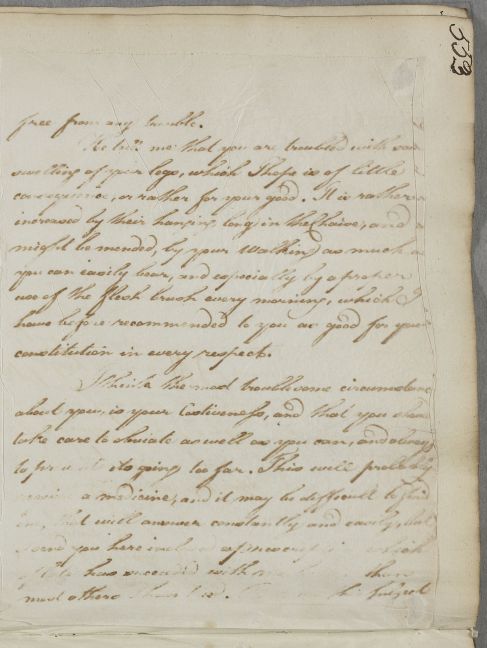 553
free from any trouble.
He tells me that you are troubled with
swelling of your legs, which I hope is of little
consequence, or rather for your good. It is rather
increased by their hanging long in the Chaise, and
might be mended, by your Walking as much as
you can easily bear, and especially by a proper
use of the flesh brush every morning, which I
have before recommended to you as good for your
constitution in every respect.
I think the most troublesome circumstance
about you, is your Costiveness, and that you should
take care to obviate as well as you can, and always
to prevent its going too far. This will probably
require a medicine, and it may be difficult to find
one, that will answer constantly and easily, but
I send you here inclosed a prescription which
of late has succeeded with me better than
most others I have tried. subject